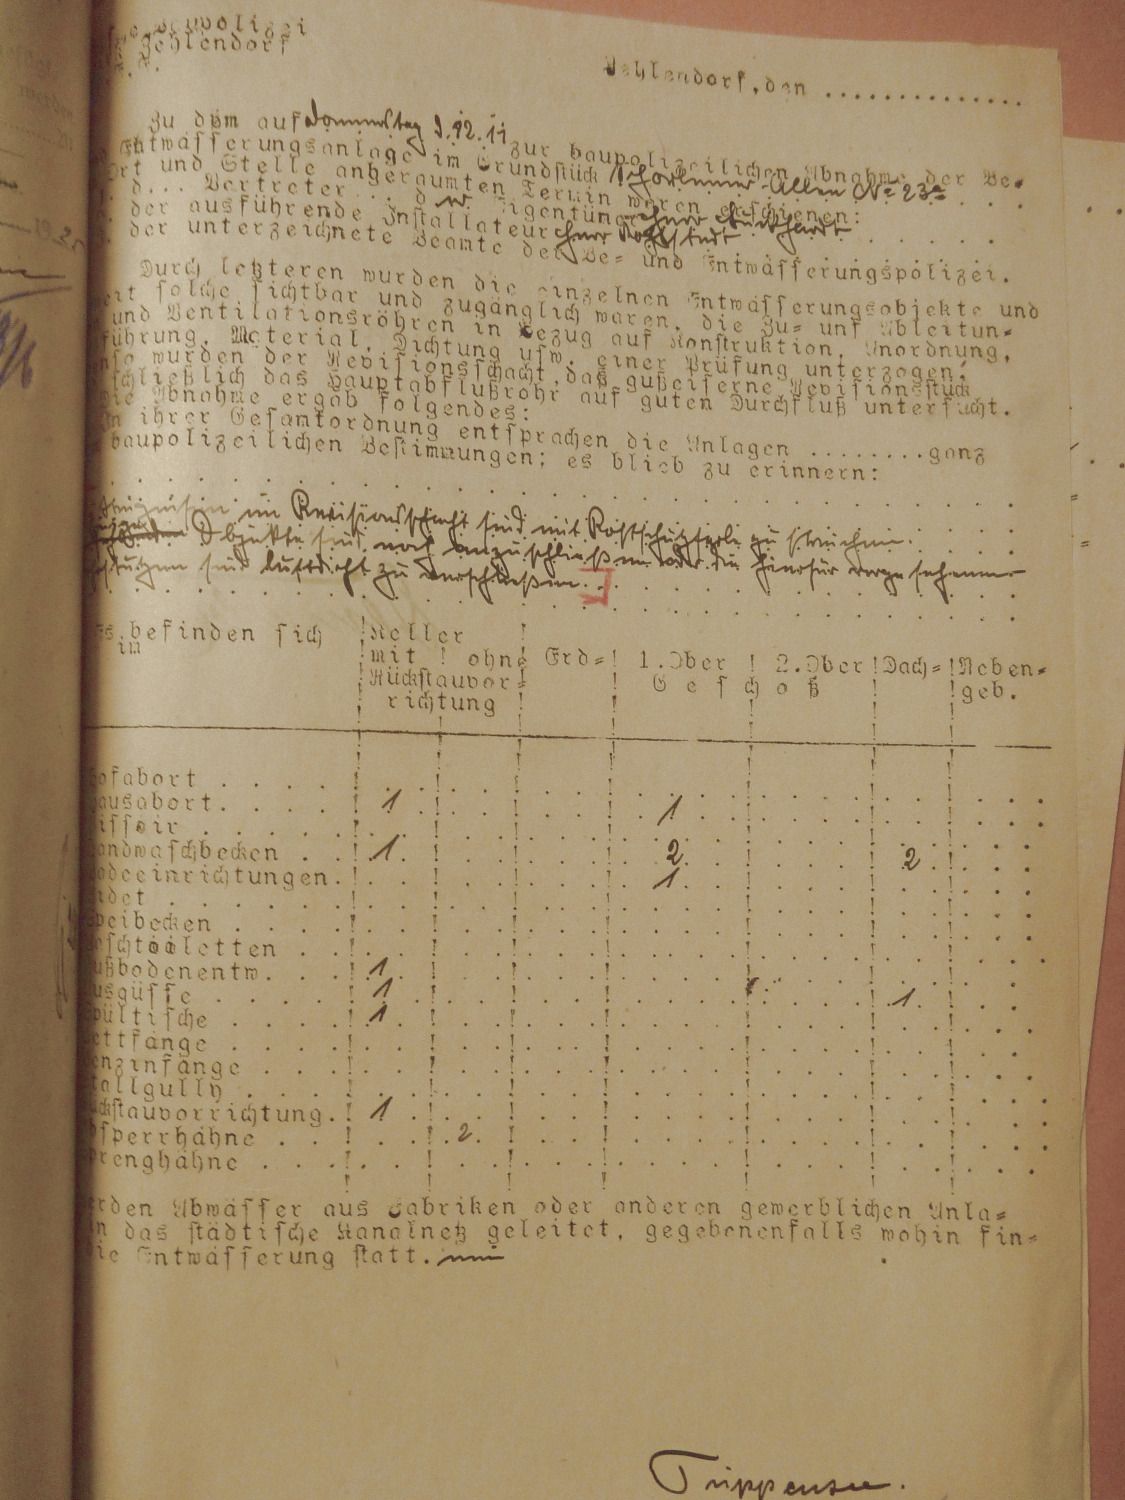 Baupolizei
Zehlendorf
Zehlendorf, den ..............
Zu dem auf Donnerstag 9.12.11 zur baupolizeilichen Abnahme der Be=
Entwässerungsanlage im Grundstück Schorlemer-Allee No 23a
Ort und Stelle anberaumten Termin waren erschienen:
d... Vertreter... der Eigentümer Herr
der ausführende Installateur Herr
der unterzeichnete Beamte der Be= und Entwässerungspolizei.
Durch letzteren wurden die einzelnen Entwässerungsobjekte und
weit solche sichtbar und zugänglich waren, die Zu= unf Ableitun=
und Ventilationsröhren in Bezug auf Konstruktion, Anordnung,
führung, Material, Dichtung usw. einer Prüfung unterzogen.
enso wurden der Revisionsschacht, das gußeiserne Revisionsstück
schließlich das Hauptabflußrohr auf guten Durchfluß untersucht.
Die Abnahme ergab folgendes:
In ihrer Gesamtordnung entsprachen die Anlagen ........ganz
baupolizeilichen Bestimmungen; es blieb zu erinnern:
im Revisionsschacht sind mit Rostschutzfarbe zu streichen.
Objekte sind noch anzuschließen oder die hierfür vorgesehenen
stutzen sind luftdicht zu verschließen.
Es befinden sich
im
Keller
mit ! ohne
Rückstauvor=
richtung
Erd= ! 1.Ober ! 2.Ober ! Dach= ! Neben=
G e s ch o ß
geb.
Hofabort . . . .
Hausabort. . . . 1 1
Pissoir . . . .
Handwaschbecken . . 1 2 2
Badeeinrichtungen. 1
Bidet . . . .
Speibecken . . . .
Waschtoiletten . . .
Fußbodenentw. . . . 1
Ausgüsse . . . . 1 1
Spültische . . . . 1
Fettfänge . . . .
Benzinfänge . . . .
Stallgully . . . .
Rückstauvorrichtung. . 1
Absperrhähne . . . . 2
Sprenghähne . . . .
Werden Abwässer aus Fabriken oder anderen gewerblichen Anla=
in das städtische Kanalnetz geleitet, gegebenenfalls wohin fin=
die Entwässerung statt. nein
Trippensee.